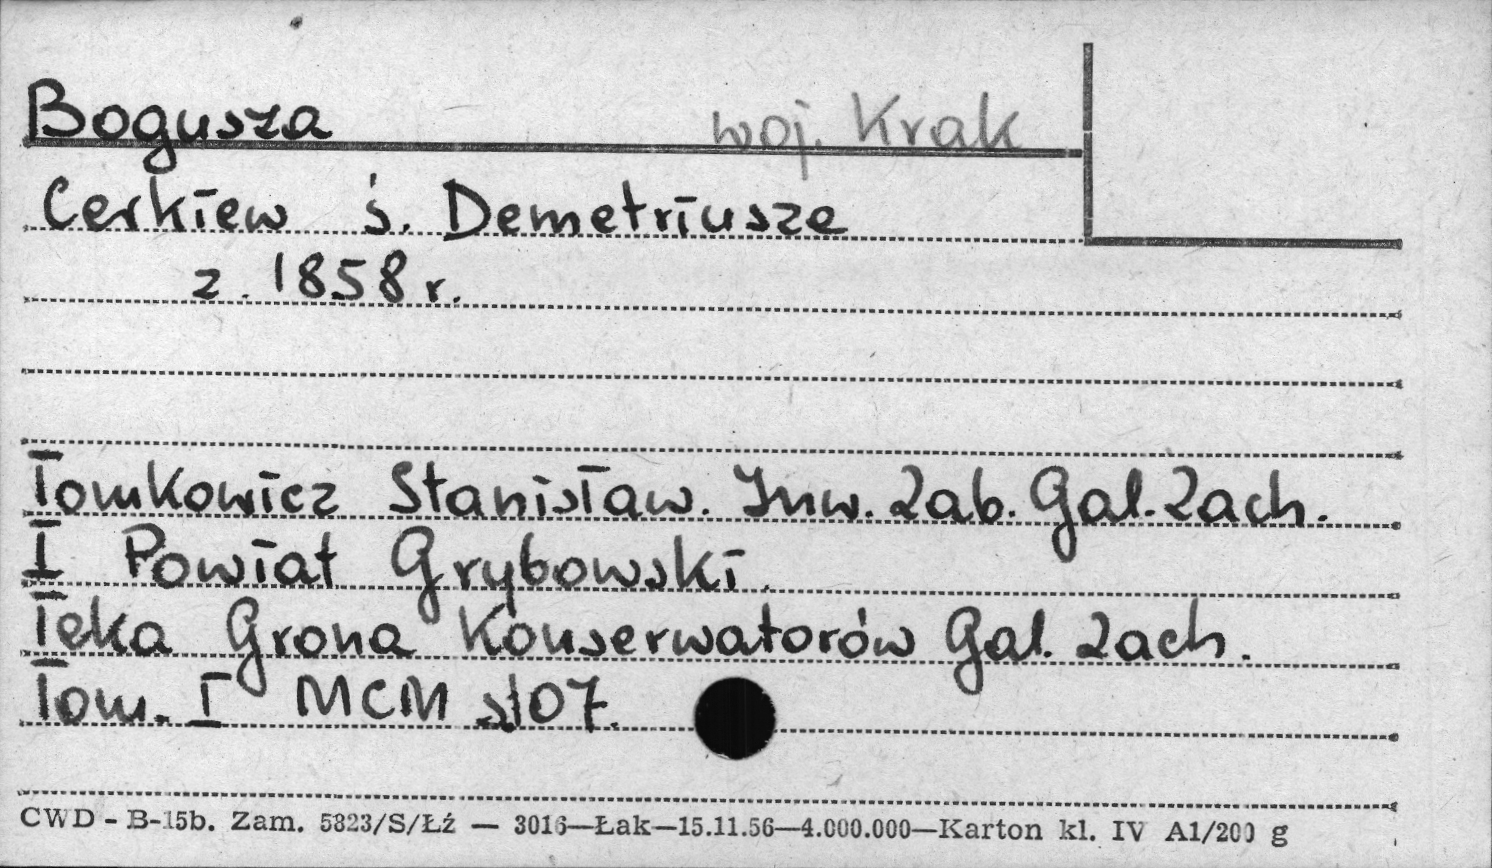 Bogusza woj. Krak
Cerkiew ś. Demetriusze
z. 1858 r.
Tomkowicz Stanisław. Inw. Zab. Gal. Zach.
I Powiat Grybowski.
Teka Grona Konserwatorów Gal. Zach.
Tom. I MCM s107.
CWD - B-15b. Zam. 5823/S/Łź — 3016—Łak—15.11.56—4.000.000—Karton kl. IV A1/200 g